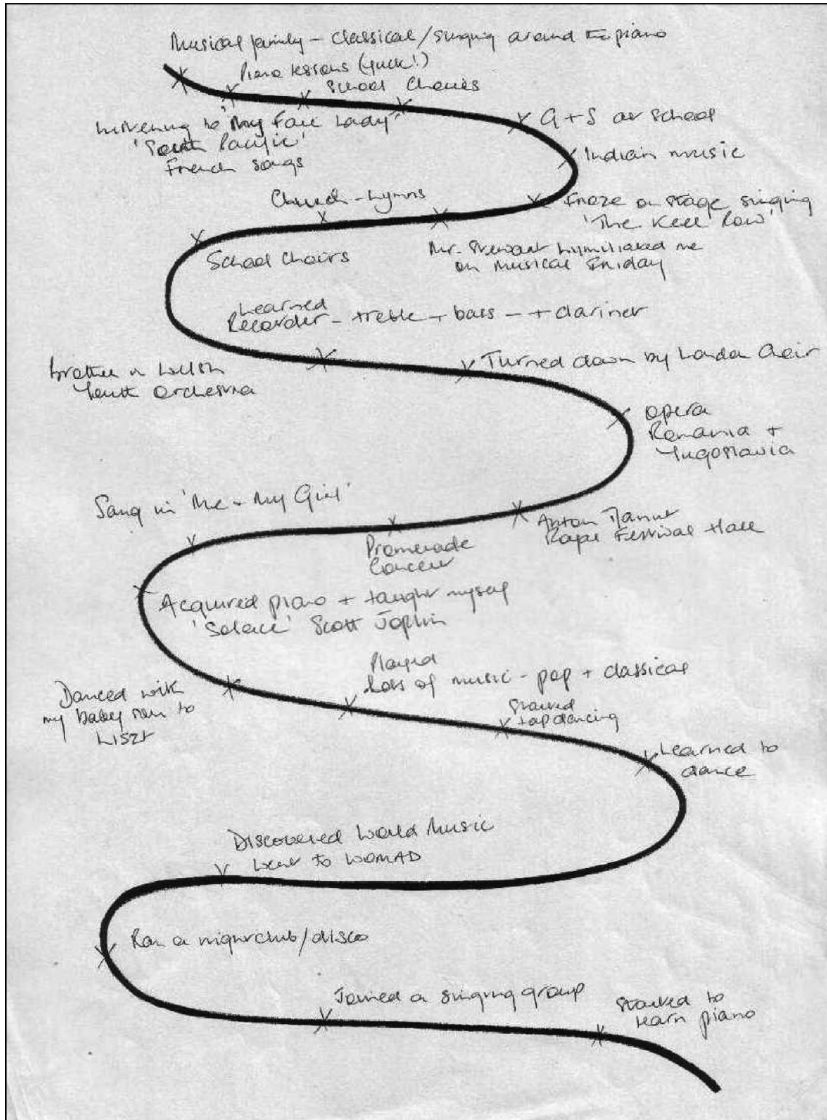 Musical family - classical/singing around the piano
Piano lessons (yuck!)
School Choirs
Listening to 'My Fair Lady'
'South Pacific'
French songs
G+S at School
Indian music
Froze on stage singing
'The Keel Row'
Church - hymns
Mr. Stewart humiliated me
on Musical Friday
School Choirs
Learned
Recorder - treble + bass - + clarinet
brother in Welsh
Youth Orchestra
Turned down by London Choir
Opera
Romania +
Yugoslavia
Sang in 'Me + My Girl'
Promenade
Concert
Anton
Festival Hall
Acquired piano + taught myself
'Solace' Scott Joplin
Danced with
my baby son to
Liszt
Played
Lots of music - pop + classical
Started
tap dancing
Learned to
dance
Discovered World Music
Went to WOMAD
Ran a nightclub/disco
Joined a singing group
Started to
learn piano